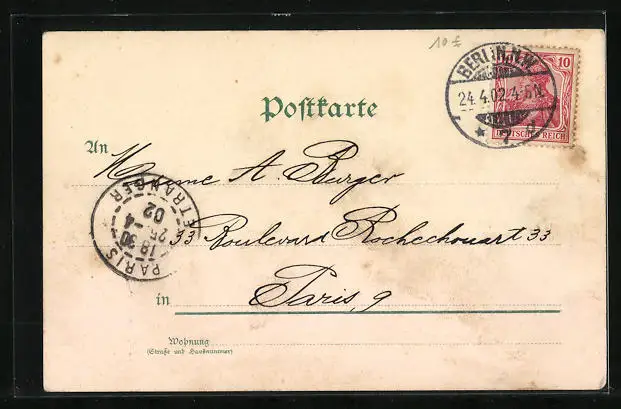 10 £
BERLIN, N.W.
24.4.02.4-5N.
* 7 d
10
DEUTSCHES REICH
Postkarte
An
Mme A. Burger
PARIS ETRANGER
18 30
25 -4
02
33 Boulevard Rochechouart 33
in Paris, 9
Wohnung
(Straße und Hausnummer)